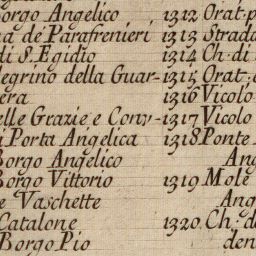 Borgo Angelico 1312 Orat.
na de' Parafrenieri 1313 Strada
di S. Egidio 1314 Ch. di
egrino della Guar- 1315 Orat.
era 1316 Vicolo
elle Grazie e Conv- 1317 Vicolo
i Porta Angelica 1318 Ponte
Borgo Angelico Ang
Borgo Vittorio 1319 Mole
e Vaschette Ang
Catalone 1320 Ch. de
Borgo Pio den